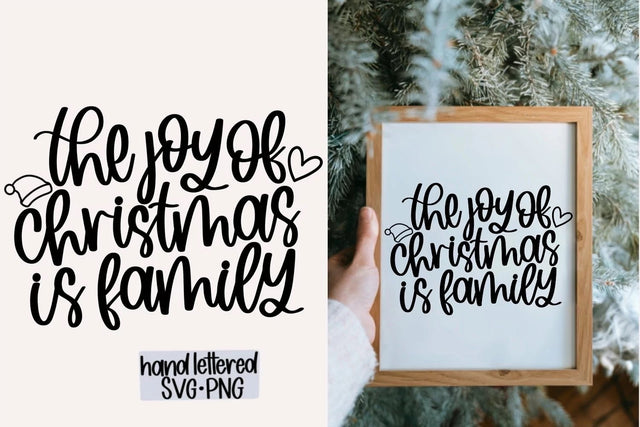 the joy of
christmas
is family
hand lettered
SVG•PNG
the joy of
christmas
is family